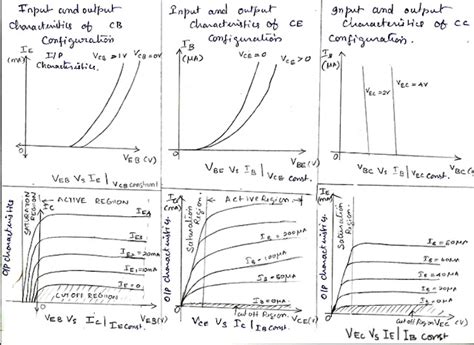 Input and output
Characteristics of CB
Configuration
I/P
Characteristics.
IE
(mA)
VCB>1V
VCB=0V
0
VEB(V)
VEB Vs IE | VCB constant
Input and output
Characteristics of CE
Configuration
IB
(μA)
VCE=0
VCE>0
0
VBE(V)
VBE Vs IB | VCE const.
Input and output
Characteristics of CC
Configuration.
IB
(μA)
VEC=2V
VEC=4V
0
VBC(V)
VBC Vs IB | VEC const.
O/P Characteristics
SATURATION
REGION
IC
ACTIVE REGION
IE2=20mA
IE1=10mA
IE=0
CUTOFF REGION
0
VEB(V)
VEB Vs IC | IE const.
O/P characteristics.
IC
(mA)
Saturation
Region.
Active Region
IB=200μA
IB=100μA
IB=50μA
IB=0μA.
cutoff Region
0
VCE(V)
VCE Vs IC | IB const
O/P characteristics.
IE
(mA)
Saturation
Region.
IB=60μA
IB=40μA
IB=20μA
IB=0μA
Cutoff Region
VEC(V)
0
VEC Vs IE | IB const